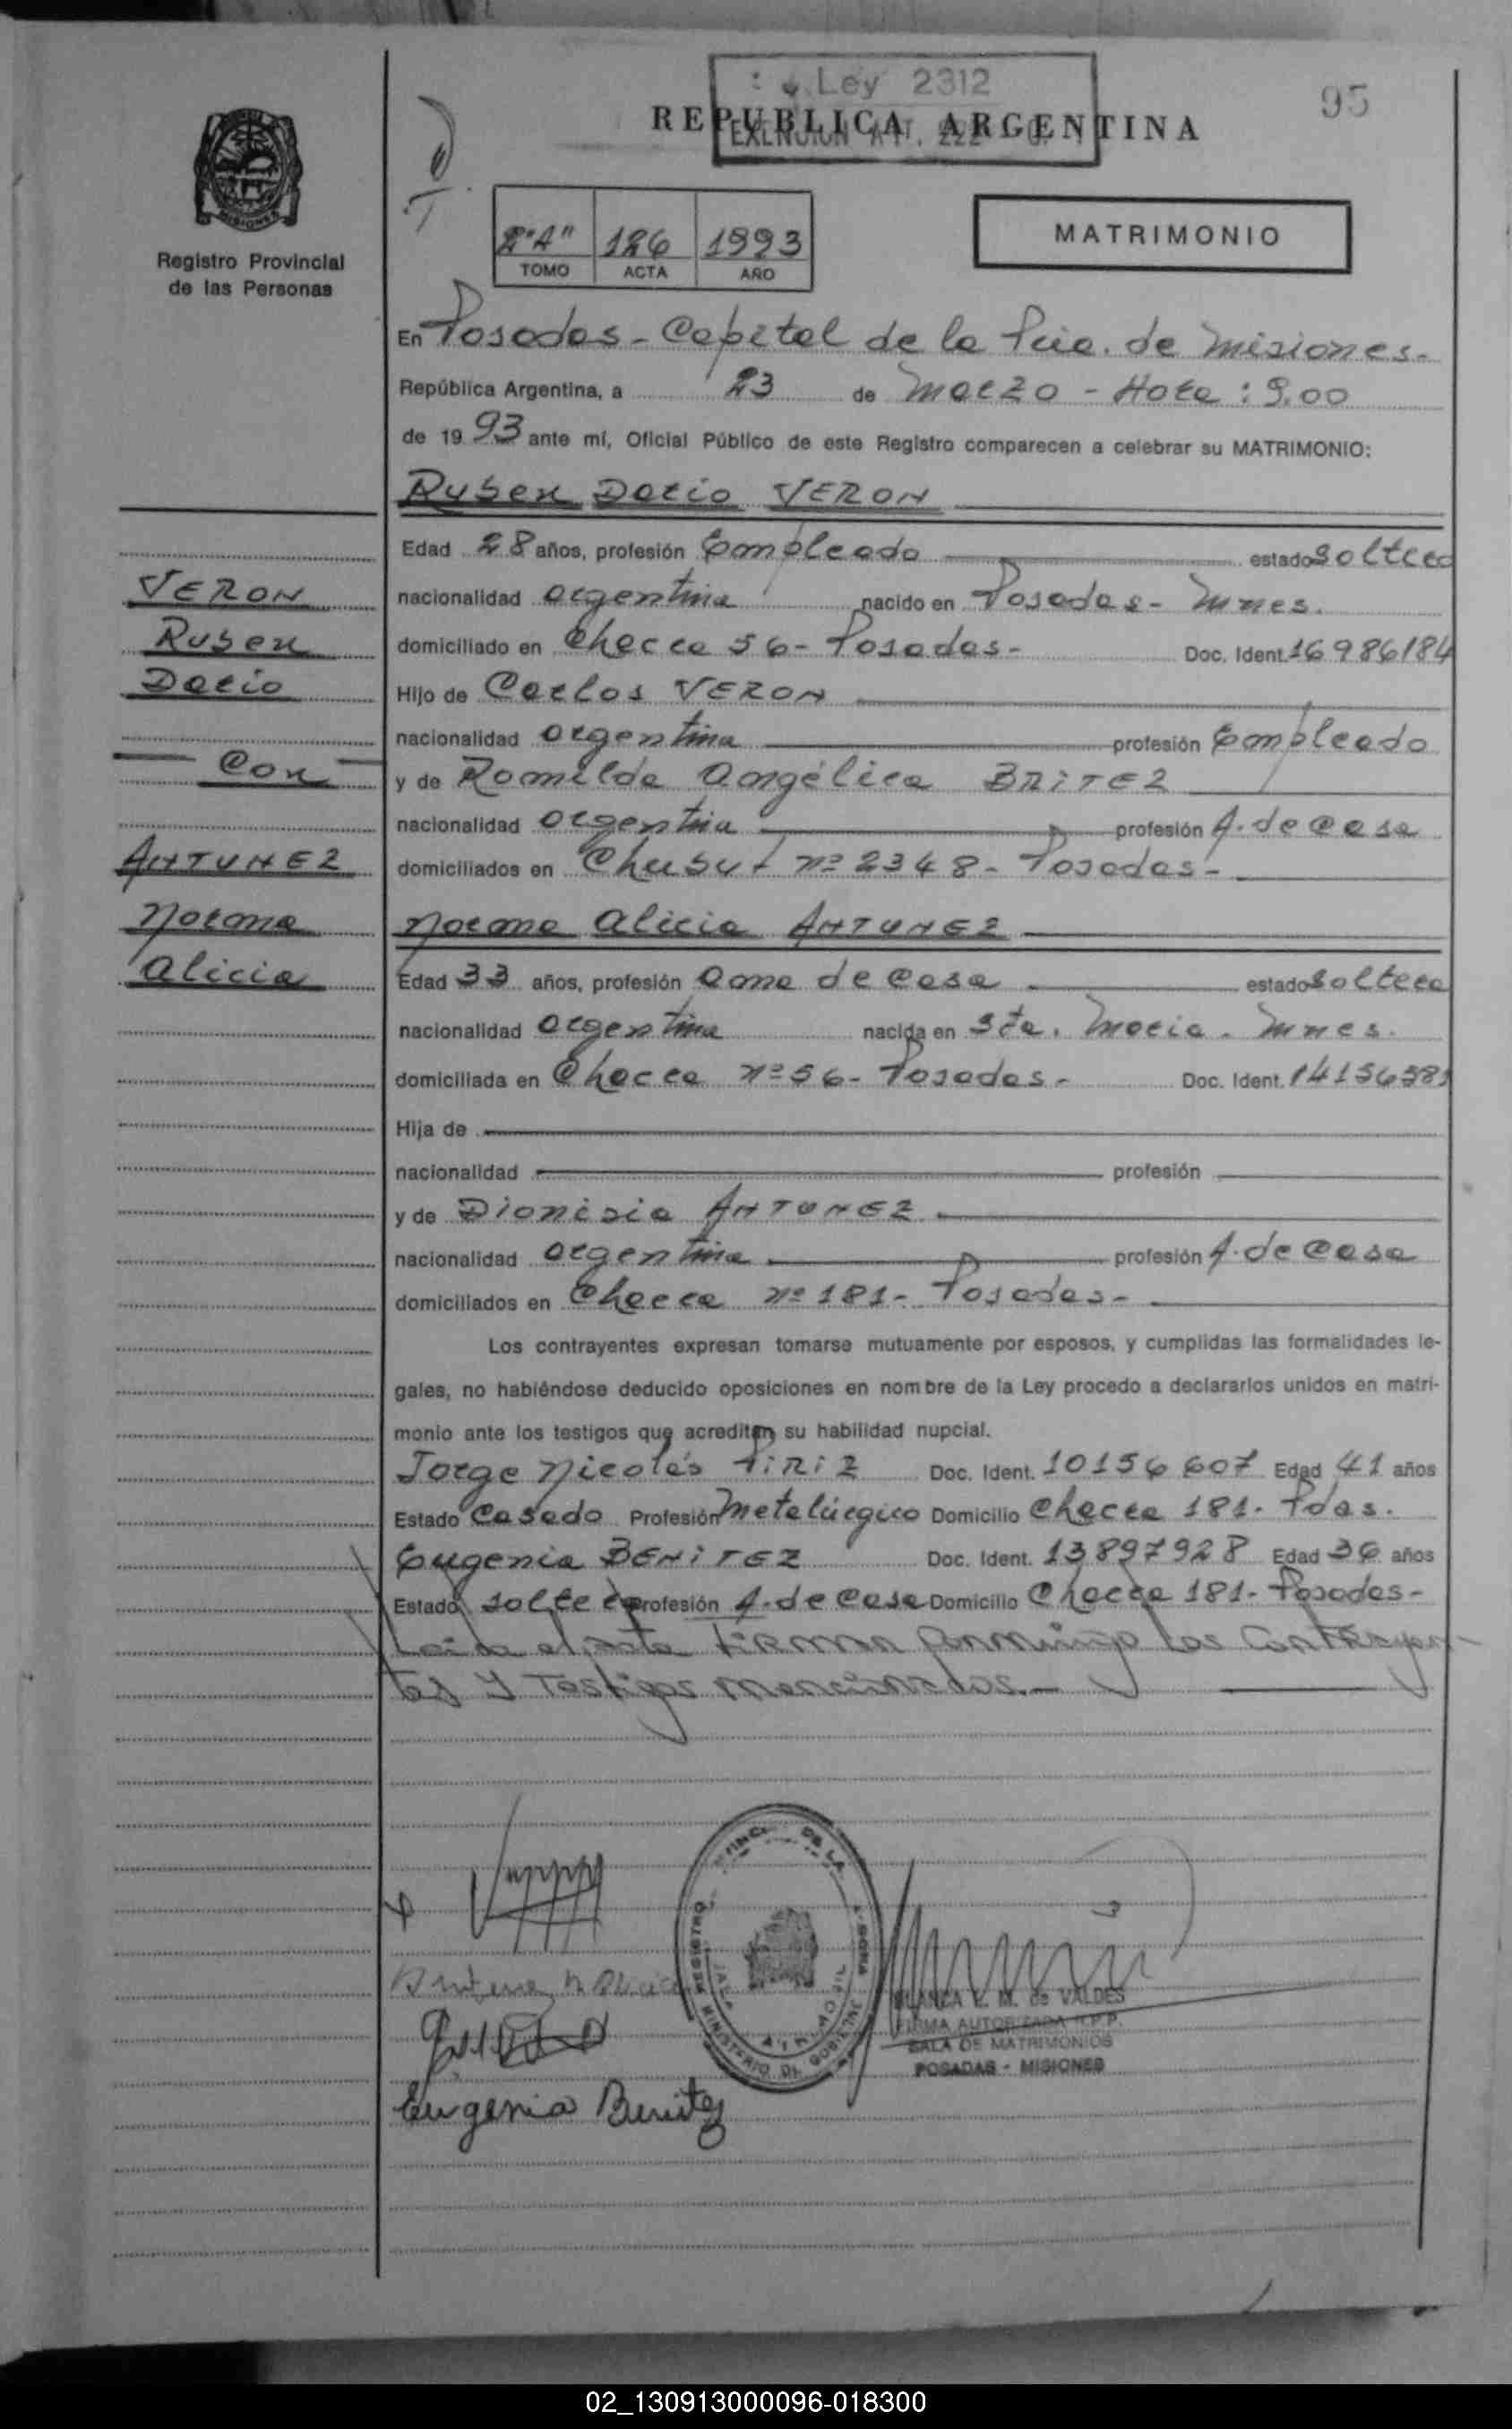 Ley 2312
95
REPUBLICA ARGENTINA
MISIONES
Registro Provincial
de las Personas
2"A" 126 1993
TOMO ACTA AÑO
MATRIMONIO
En Posadas - Capital de la Pcia. de Misiones.-
República Argentina, a 23 de Marzo - Hora: 9.00
de 1993 ante mí, Oficial Público de este Registro comparecen a celebrar su MATRIMONIO:
Ruben Dario VERON
Edad 28 años, profesión Empleado estado soltero
VERON
nacionalidad argentina nacido en Posadas - Mnes.
Ruben
domiciliado en Chacra 56 - Posadas - Doc. Ident. 16986184
Dario
Hijo de Carlos VERON
nacionalidad argentina profesión Empleado
Con
y de Romilda Angélica BRITEZ
nacionalidad argentina profesión A. de Casa
ANTUNEZ
domiciliados en Chubut nº 2348 - Posadas -
Norma
Norma Alicia ANTUNEZ
Alicia
Edad 33 años, profesión Ama de Casa estado soltera
nacionalidad argentina nacida en Sta. Maria - Mnes.
domiciliada en Chacra nº 56 - Posadas - Doc. Ident.
Hija de
nacionalidad profesión
y de Dionisia ANTUNEZ
nacionalidad argentina profesión A. de Casa
domiciliados en Chacra nº 181 - Posadas -
Los contrayentes expresan tomarse mutuamente por esposos, y cumplidas las formalidades le-
gales, no habiéndose deducido oposiciones en nombre de la Ley procedo a declararlos unidos en matri-
monio ante los testigos que acreditan su habilidad nupcial.
Jorge Nicolás PIRIZ Doc. Ident. 10156607 Edad 41 años
Estado Casado Profesión Metalúrgico Domicilio Chacra 181 - Pdas.
Eugenia BENITEZ Doc. Ident. 13897928 Edad 36 años
Estado soltera Profesión A. de Casa Domicilio Chacra 181 - Posadas -
Leida el acta firman conmigo los contrayen-
tes y testigos mencionados.-
BLANCA E. M. de VALDES
FIRMA AUTORIZADA R.P.P.
SALA DE MATRIMONIOS
POSADAS - MISIONES
Eugenia Benitez
02_130913000096-018300